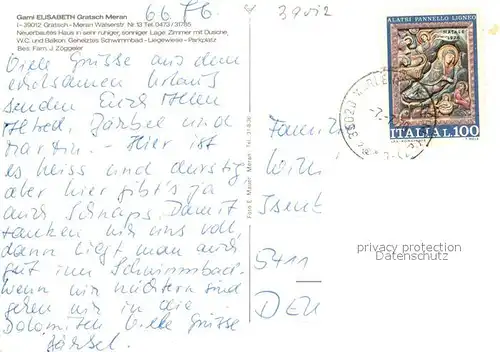 66 76
39012
Garni ELISABETH Gratsch Meran
I-39012 Gratsch - Meran Walserstr. Nr. 13 Tel. 0473/31785
Neuerbautes Haus in sehr ruhiger, sonniger Lage. Zimmer mit Dusche,
W.C. und Balkon. Geheiztes Schwimmbad - Liegewiese - Parkplatz
Bes. Fam. J. Zöggeler
Viele Grüsse aus dem
erholsamen Urlaub
senden Euch Allen
Alfred, Bärbel und
Martin. - Hier ist
es heiss und durstig
aber hier gibt's ja
auch Schnaps. Damit
tanken wir uns voll,
dann liegt man auch
gut im Schwimmbad.
Wenn wir nüchtern sind
gehen wir in die
Dolomiten. Viele Grüsse
Bärbel.
Foto E. Mauer Meran Tel.
ALATRI PANNELLO LIGNEO
NATALE
ITALIA 100
Familie
5411
DEU
privacy protection
Datenschutz